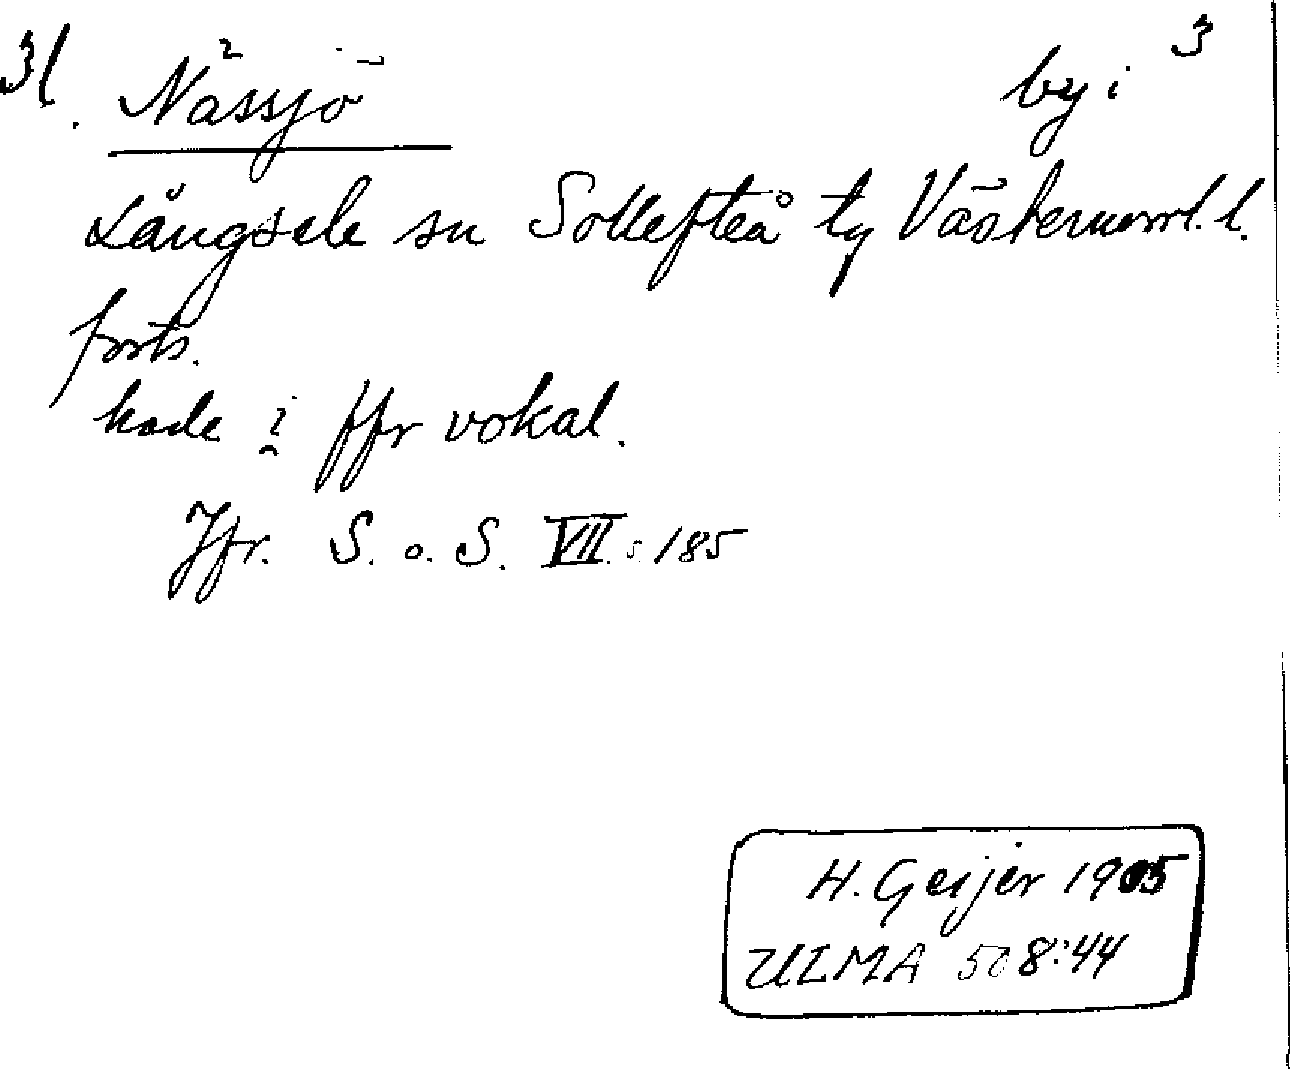 3/. Nässjö by i 3
Långsele sn Sollefteå tg Västernorrl. l.
forts.
hade i̯ ffr vokal.
Jfr. S. o. S. VII s. 185
H. Geijer 1905
ULMA 508:44